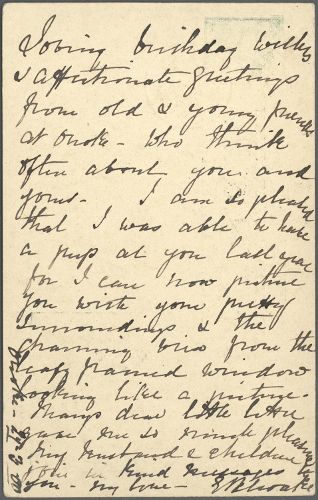 Loving birthday wishes
& affectionate greetings
from old & young friends
at Onoke - who think
often about you and
yours - I am so pleased
that I was able to have
a peep at you last year
for I can now picture
you with your pretty
surroundings & the
charming view from the
leafy framed window
looking like a picture -
Mary's dear little letter
gave me so much pleasure
My husband & children
join in kind messages
you - my love -